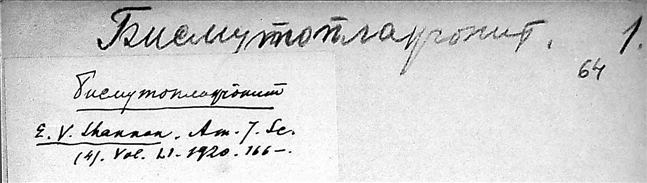 Бисмутоплагионит. 1.
64
Бисмутоплагионит
E. V. Shannon. Am. J. Sc.
(4). Vol. LI. 1920. 166–.